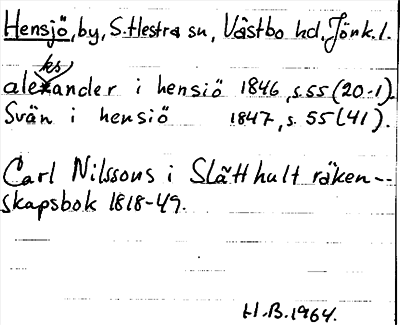 Hensjö, by, S. Hestra sn, Västbo hd, Jönk. l.
ks
alexander i hensiö 1846, s. 55 (20-1).
Svän i hensiö 1847, s. 55 (41).
Carl Nilssons i Slätthult räken-
skapsbok 1818-49.
H.B. 1964.